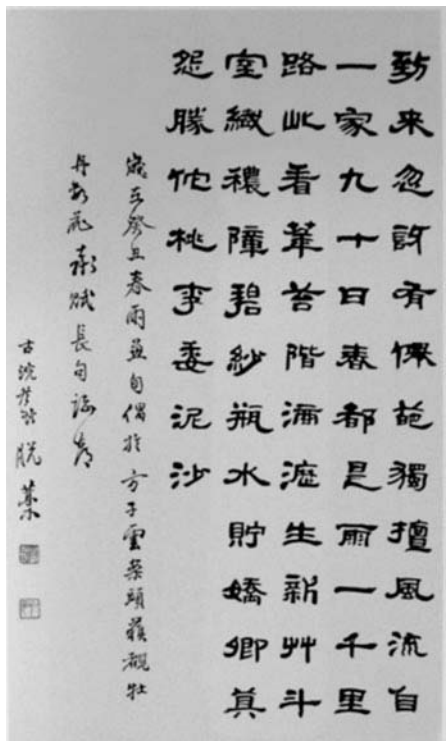 到来忽訝有僊葩獨擅風流自
一家九十日春都是雨一千里
路此看華苔階漏溼生新艸斗
室緻穠障碧紗瓶水貯嬌卿莫
怨勝佗桃李委泥沙
歲在癸丑春雨兼旬偶於方子雲案頭獲觀牡
丹數花賦長句誌
古浣脫藁